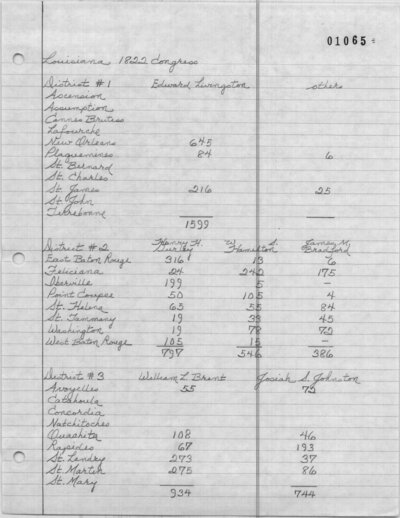 01065
Louisiana 1822 Congress
District #1 Edward Livingston others
Ascension
Assumption
Cannes Brulees
Lafourche
New Orleans 645
Plaquemines 84 6
St. Bernard
St. Charles
St. James 216 25
St. John
Terrebonne
1599
District #2 Henry H. Gurley W. S. Hamilton James M. Bradford
East Baton Rouge 316 13 6
Feliciana 24 242 175
Iberville 199 5 -
Point Coupee 50 105 4
St. Helena 65 55 84
St. Tammany 19 33 45
Washington 19 78 72
West Baton Rouge 105 15 -
797 546 386
District #3 William L. Brent Josiah S. Johnston
Avoyelles 55 72
Catahoula
Concordia
Natchitoches
Ouachita 108 46
Rapides 67 193
St. Landry 273 37
St. Martin 275 86
St. Mary
934 744